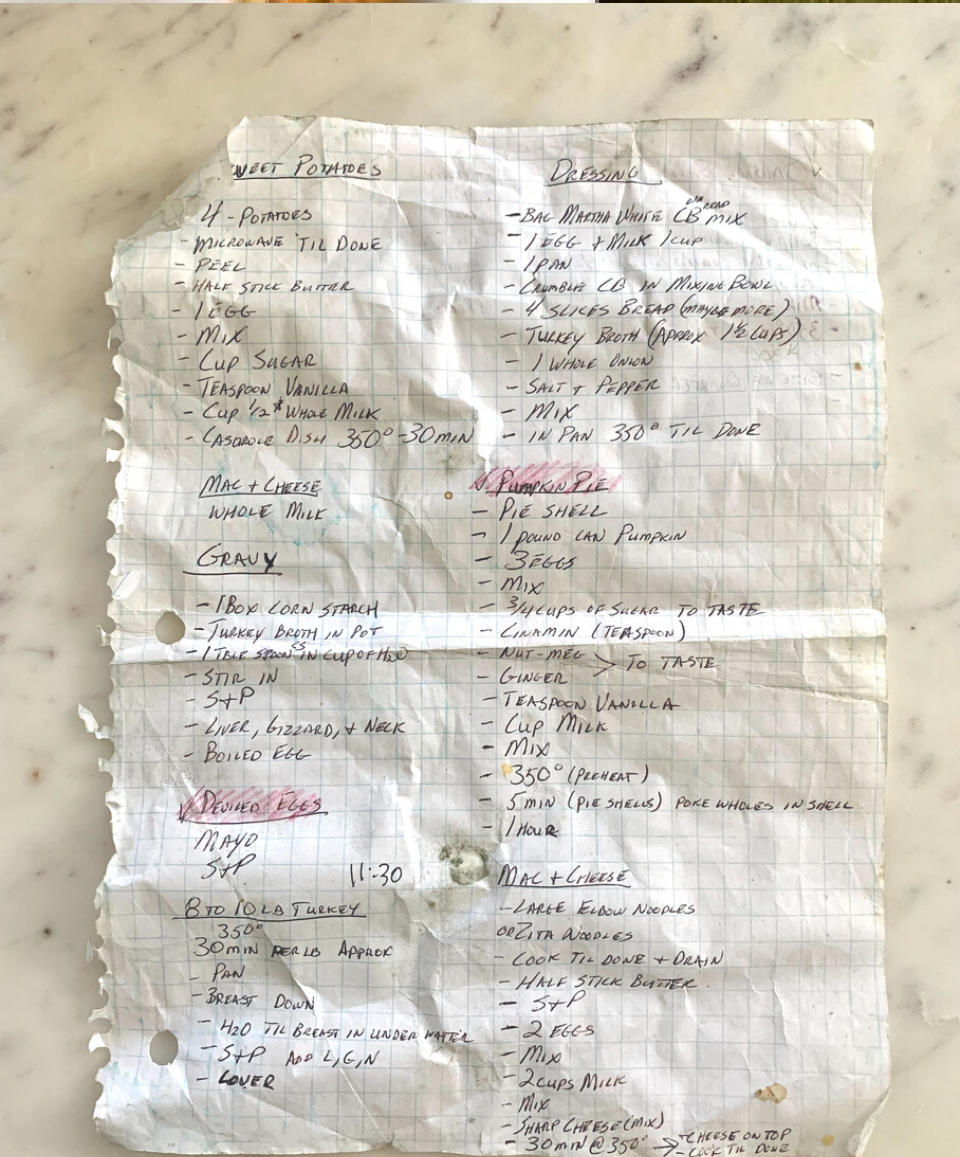 SWEET POTATOES
4 - POTATOES
- MICROWAVE 'TIL DONE
- PEEL
- HALF STICK BUTTER
- 1 EGG
- MIX
- CUP SUGAR
- TEASPOON VANILLA
- CUP 1/2 * WHOLE MILK
- CASOROLE DISH 350° - 30 MIN
MAC + CHEESE
WHOLE MILK
GRAVY
- 1 BOX CORN STARCH
- TURKEY BROTH IN POT
- 1 TBLE SPOON IN CUP OF H2O
- STIR IN
- S+P
- LIVER, GIZZARD, + NECK
- BOILED EGG
✓ DEVILED EGGS
MAYO
S+P
11:30
8 TO 10 LB TURKEY
350°
30 MIN PER LB APPROX
- PAN
- BREAST DOWN
- H2O TIL BREAST IN UNDER WATER
- S+P ADD L, G, N
- COVER
DRESSING
- BAG MARTHA WHITE CB MIX
CORN BREAD
- 1 EGG + MILK 1 CUP
- 1 PAN
- CRUMBLE CB IN MIXING BOWL
- 4 SLICES BREAD (MAYBE MORE)
- TURKEY BROTH (APPROX 1 1/2 CUPS)
- 1 WHOLE ONION
- SALT + PEPPER
- MIX
- IN PAN 350° TIL DONE
✓ PUMPKIN PIE
- PIE SHELL
- 1 POUND CAN PUMPKIN
- 3 EGGS
- MIX
- 3/4 CUPS OF SUGAR TO TASTE
- CINAMIN (TEASPOON)
- NUT-MEG
- GINGER > TO TASTE
- TEASPOON VANILLA
- CUP MILK
- MIX
- 350° (PREHEAT)
- 5 MIN (PIE SHELLS) POKE WHOLES IN SHELL
- 1 HOUR
MAC + CHEESE
- LARGE ELBOW NOODLES
OR ZITA NOODLES
- COOK TIL DONE + DRAIN
- HALF STICK BUTTER
- S+P
- 2 EGGS
- MIX
- 2 CUPS MILK
- MIX
- SHARP CHEESE (MIX)
- 30 MIN @ 350° → - CHEESE ON TOP
- COOK TIL DONE